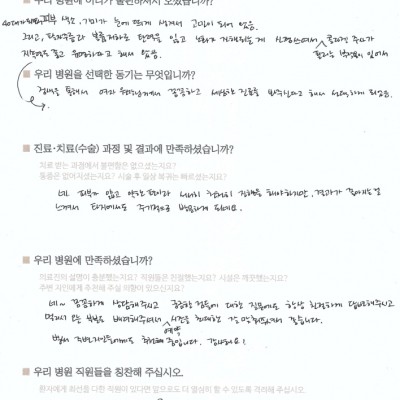 우리 병원에 어디가 불편하셔서 오셨습니까?
40대가 되면서 피부 색소, 기미가 눈에 띄게 생겨서 고민이 되어 있음.
그리고, 탄력을 잃고
우리 병원을 선택한 동기는 무엇입니까?
검색을 통해서 여자 원장님께서 꼼꼼하고 세심한 진료를 봐주신다고 해서 선택하게 되었음.
진료·치료(수술) 과정 및 결과에 만족하셨습니까?
치료 받는 과정에서 불편함은 없으셨는지요?
통증은 없어지셨는지요? 시술 후 일상 복귀는 빠르셨는지요?
네. 피부가 얇고 약한 편이라 천천히 진행을 해야하지만, 결과가 좋아지는걸
느껴서 타지에서도 주기적으로 방문하게 되네요.
우리 병원에 만족하셨습니까?
의료진의 설명이 충분했는지요? 직원들은 친절했는지요? 시설은 깨끗했는지요?
주변 지인에게 추천해 주실 의향이 있으신지요?
네~ 꼼꼼하게 상담해주시고 궁금한 점들에 대한 질문에도 항상 친절하게 답변해주시고
멀리서 오는 부분을 배려해주셔서 예약 시간을 최대한 잘 맞춰주셔서 좋습니다.
벌써 주변지인들에게도 추천해 줍니다. 감사해요!
우리 병원 직원들을 칭찬해 주십시오.
환자에게 최선을 다한 직원이 있다면 앞으로도 더 열심히 할 수 있도록 격려해 주십시오.